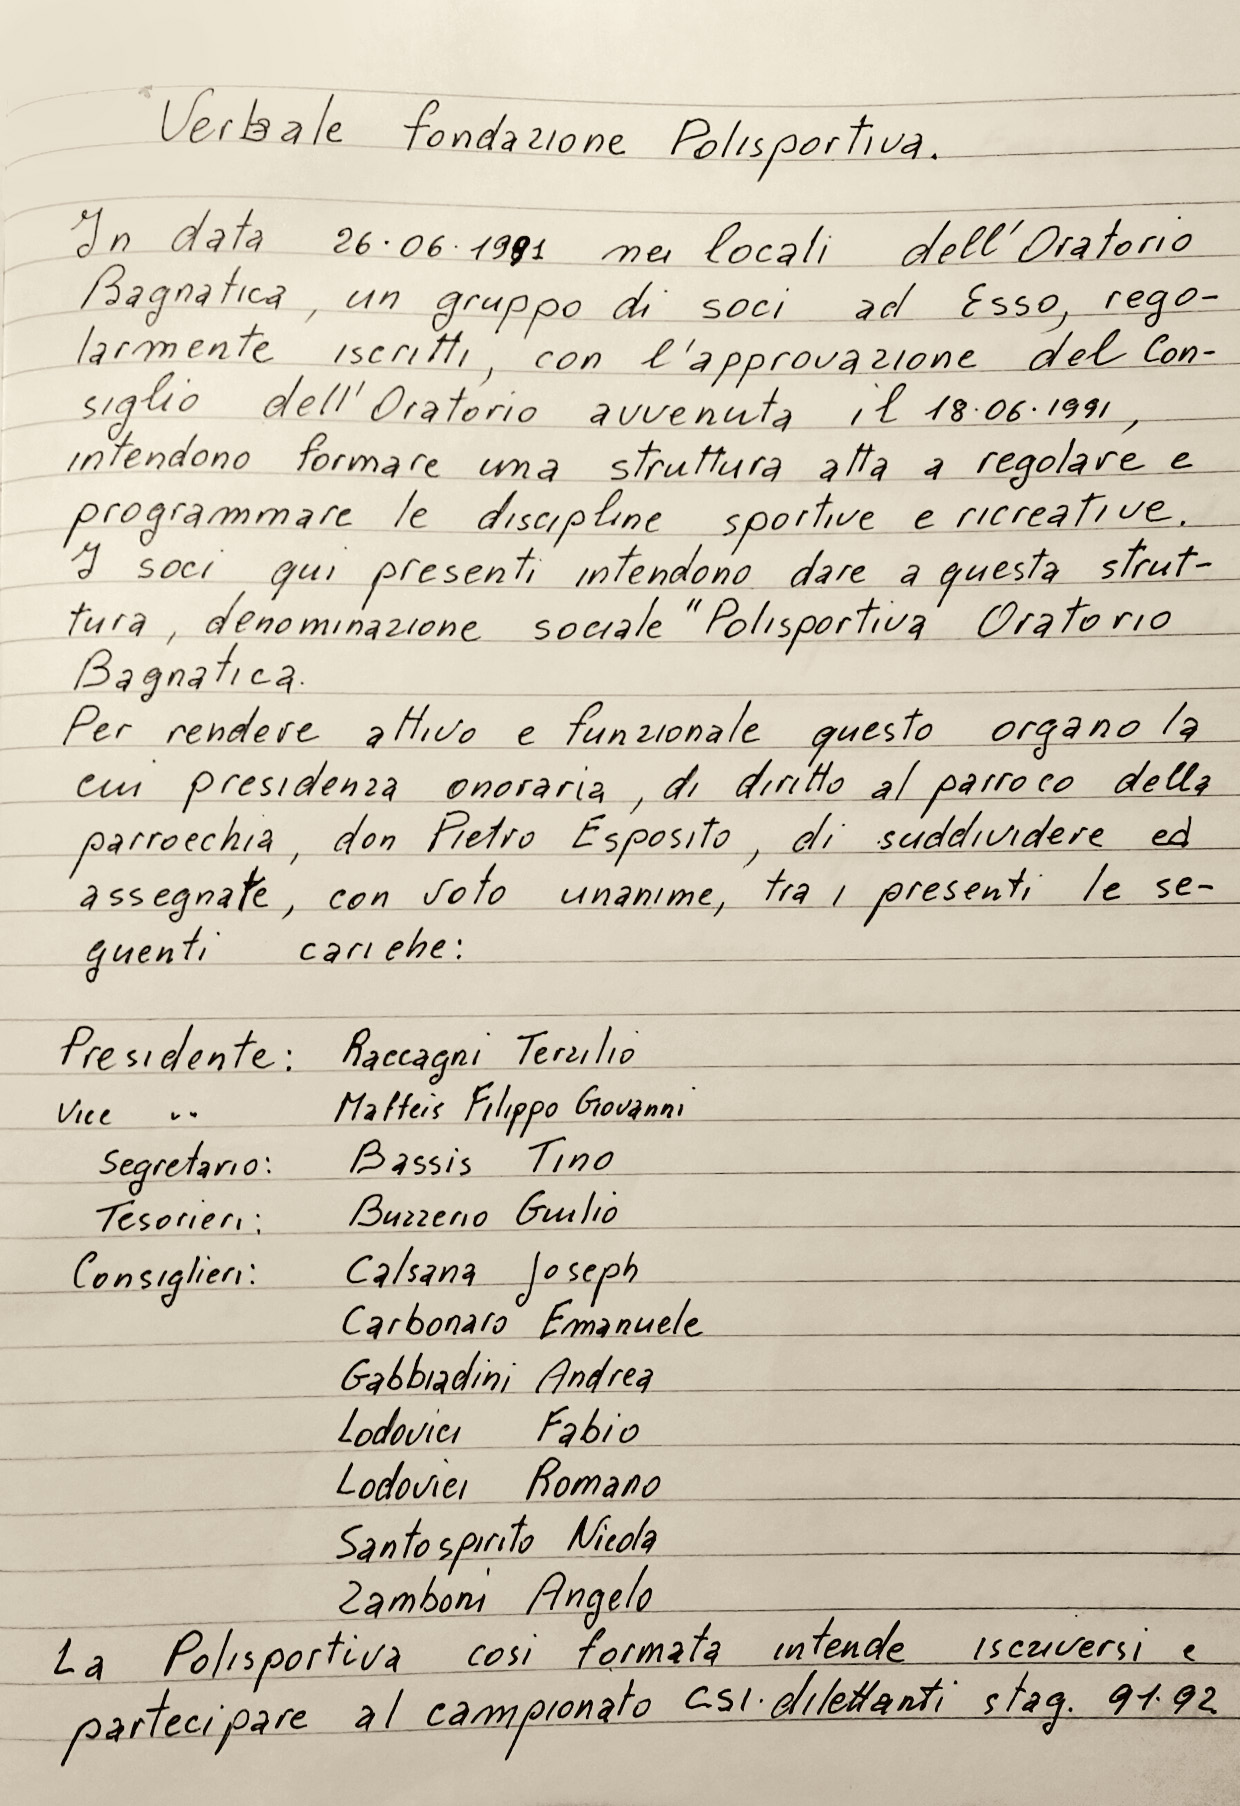 Verbale fondazione Polisportiva.
In data 26.06.1991 nei locali dell'Oratorio
Bagnatica, un gruppo di soci ad Esso, rego-
larmente iscritti, con l'approvazione del Con-
siglio dell'Oratorio avvenuta il 18.06.1991,
intendono formare una struttura atta a regolare e
programmare le discipline sportive e ricreative.
I soci qui presenti intendono dare a questa strut-
tura, denominazione sociale "Polisportiva Oratorio
Bagnatica.
Per rendere attivo e funzionale questo organo la
cui presidenza onoraria, di diritto al parroco della
parrocchia, don Pietro Esposito, di suddividere ed
assegnate, con voto unanime, tra i presenti le se-
guenti cariche:
Presidente: Raccagni Terzilio
Vice " Maffeis Filippo Giovanni
Segretario: Bassis Tino
Tesorieri: Buzzerio Giulio
Consiglieri: Calsana Joseph
Carbonaro Emanuele
Gabbiadini Andrea
Lodovici Fabio
Lodovici Romano
Santospirito Nicola
Zamboni Angelo
La Polisportiva cosi formata intende iscriversi e
partecipare al campionato CSI. dilettanti stag. 91.92